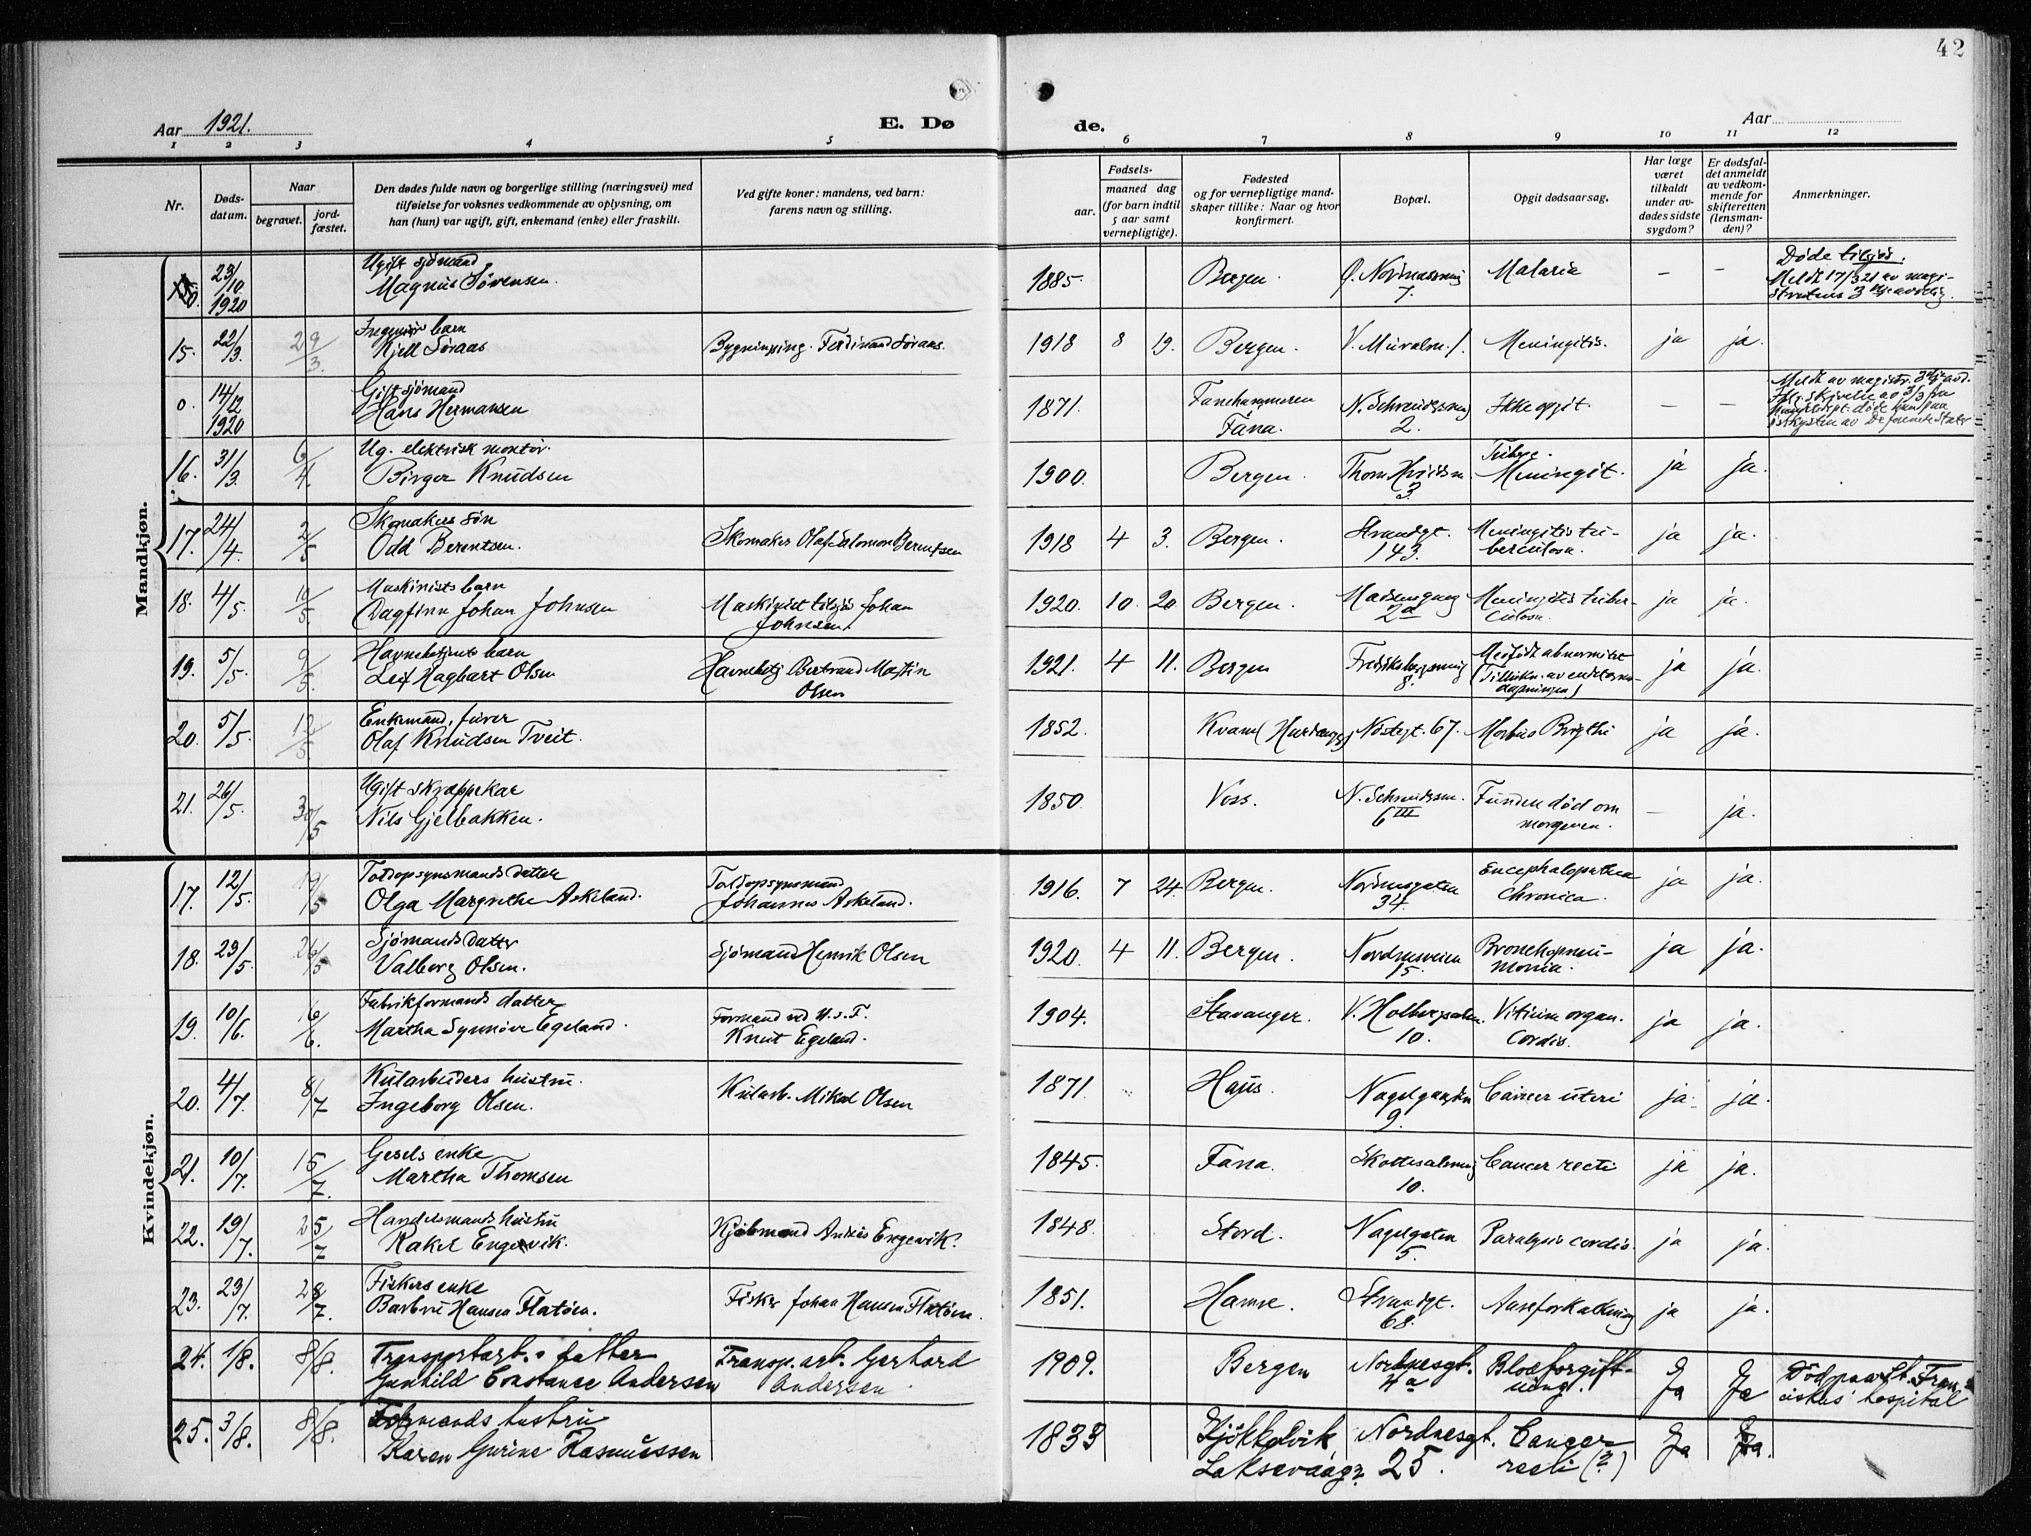 42
Aar 1921.
E. Dø
de.
Aar
1 2 3 4 5 6 7 8 9 10 11 12
Nr.
Døds-
datum.
Naar
begravet.
jord-
fæstet.
Den dødes fulde navn og borgerlige stilling (næringsvei) med
tilføielse for voksnes vedkommende av oplysning, om
han (hun) var ugift, gift, enkemand (enke) eller fraskilt.
Ved gifte koner: mandens, ved barn:
farens navn og stilling.
Fødsels-
aar.
maaned dag
(for barn indtil
5 aar samt
vernepligtige).
Fødested
og for vernepligtige mand-
skaper tillike: Naar og hvor
konfirmert.
Bopæl.
Opgit dødsaarsag.
Har læge
været
tilkaldt
under av-
dødes sidste
sygdom?
Er dødsfal-
det anmeldt
av vedkom-
mende for
skifteretten
(lensman-
den)?
Anmerkninger.
Mandkjøn.
0. 23/10 1920 Ugift sjømand
Magnus Sørensen. 1885. Bergen. 7. Malaria — — Døde tilsjøs.
Meldt 17/3 21 av magi-
stratens 3die avdelig.
15. 22/3. 29/3. Ingeniør barn
Kjell Søraas Bygningsing. Ferdinand Søraas. 1918 8 19. Bergen. V. Muralm. 1. Meningitis. ja ja.
0 14/12 1920 Gift sjømand
Hans Hermansen 1871. Fanehammeren
Fana. 2. Ikke opgit. — — Meldt av magistr. 3die avd.
16. 31/3. 6/4. Ug. elektrisk montør.
Birger Knudsen 1900. Bergen. 3 Meningit. ja ja.
17. 24/4 2/5 Skomakers søn
Odd Berentsen. Skomaker Olaf Salomon Berentsen 1918 4 3. Bergen. Strandgt.
143. Meningitis tu-
berculosa. ja ja.
18. 4/5. 10/5. Maskinists barn
Dagfinn Johan Johnsen Maskinist tilsjøs Johan
Johnsen. 1920. 10. 20. Bergen. 2a Meningitis tuber-
culosa. ja ja.
19. 5/5. 9/5. Havnebetjents barn
Leif Hagbart Olsen Havnebetj Bertrand Martin
Olsen 1921. 4 11. Bergen 8. Medfødt abnormitet ja ja.
20. 5/5. 12/5. Enkemand, fører
Olaf Knudsen Tveit. 1852. Kvam (Hardanger) Nøstegt. 67. Morbus Brigthi ja ja.
21. 26/5. 30/5 Ugift skræppekar
Nils Gjelbakken. 1850. Voss. 6 III Funden død om
morgenen. — ja.
Kvindekjøn.
17. 12/5. 19/5 Toldopsynsmands datter
Olga Margrethe Askeland. Toldopsynsmand
Johannes Askeland. 1916. 7 24. Bergen. Nordnesgaten
34. Encephalopathia
Chronica. ja ja.
18. 23/5. 26/5 Sjømands datter
Valborg Olsen. Sjømand Henrik Olsen 1920. 4 11. Bergen. Nordnesveien
15. Bronchopneu-
monia. ja ja.
19. 10/6. 16/6. Fabrikformands datter
Martha Synnøve Egeland. Formand ved U.S.F.
Knut Egeland. 1904. Stavanger. V. Holbergsalm.
10. Vitium organ.
Cordis. ja ja.
20. 4/7. 8/7 Kularbeiders hustru.
Ingeborg Olsen. Kularb. Mikal Olsen 1871. Haus Nagelgaten
9. Cancer uteri ja. ja.
21. 10/7. 15/7. Gesels enke
Martha Thomsen 1845. Fana. Skottesalmng
10. Cancer recti ja ja.
22. 19/7. 25/7 Handelsmands hustru
Rakel Engevik. Kjøbmand Anders Engevik. 1848. Stord. Nagelgaten
5. Paralysis cordis. ja ja.
23. 23/7. 28/7. Fiskers enke
Barbru Hansen Flatøen. Fisker Johan Hansen Flatøen. 1851. Hamre. Strandgt.
68. Aareforkalkning ja ja.
24. 1/8. 8/8. Transportarb.s datter
Gunhild Constance Andersen Transp. arb. Gerhard
Andersen. 1909. Bergen Nordnesgt.
4a Blodforgift-
ning. Ja Ja Död paa St. Fran-
ciskus' hospital
25. 3/8. 8/8. Formands hustru
Karen Gurine Rasmussen 1833 Gjøkkelvik,
Laksevaag? Nordnesgt.
25. Cancer
recti (?) Ja Ja.